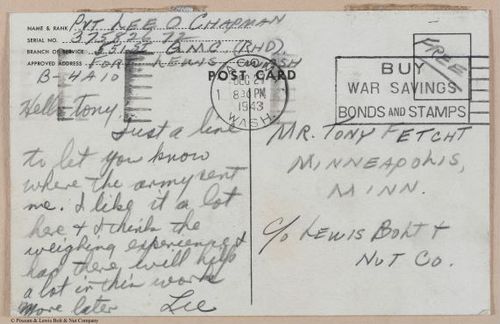 NAME & RANK PVT LEE O CHAPMAN
SERIAL NO.
BRANCH OF SERVICE Q.M.C. (RHD).
APPROVED ADDRESS FORT LEWIS WASH
B-4A10
POST CARD
1943
WASH.
8 PM
FREE
BUY
WAR SAVINGS
BONDS AND STAMPS
Hello tony
Just a line
to let you know
where the army sent
me. I like it a lot
here & I think the
weighing experience I
had there will help
a lot in this work
more later Lee
MR. TONY FETCHT
MINNEAPOLIS,
MINN.
c/o LEWIS BOLT &
NUT CO.
© Possum & Lewis Bolt & Nut Company